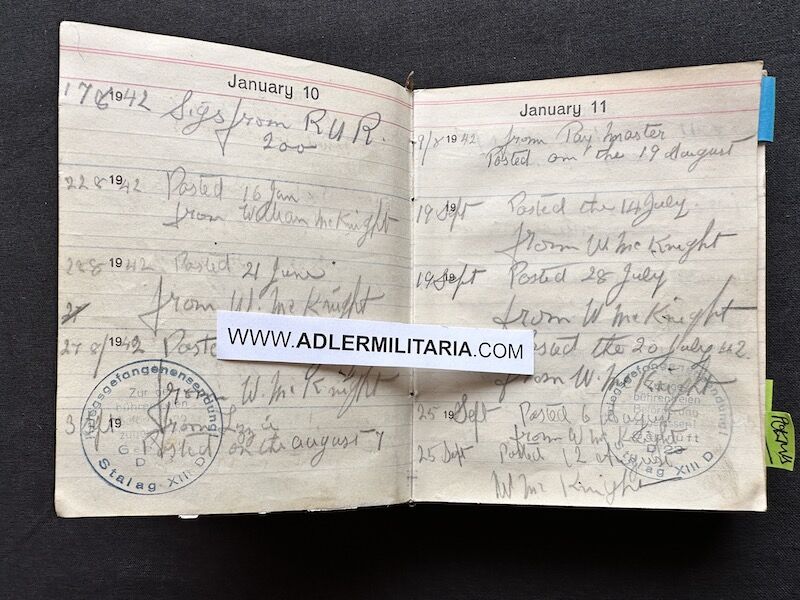 January 10
17 8 1942 Sigs from R U R.
200
22 8 1942 Posted 16 Jan
from William McKnight
28 8 1942 Posted 21 June
from W McKnight
27 8/1942
W. McKnight
3 Sept 19 from
Posted on the august 7
Kriegsgefangenensendung!
Stalag XIII D.
January 11
9/8 1942 from Pay Master
Posted on the 19 August
19 Sept 19 Posted the 14 July.
from W McKnight
19 Sept 19 Posted 28 July
from W McKnight
Posted the 20 July 42
from W. McKnight
25 19 Sept Posted 6 August
from W McKnight
25 Sept Posted 12 August
W Mc Knight
Stalag XIII D.
WWW.ADLERMILITARIA.COM